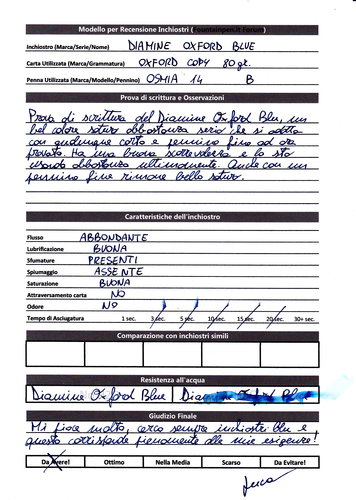 Modello per Recensione Inchiostri (Fountainpen.it Forum)
Inchiostro (Marca/Serie/Nome) DIAMINE OXFORD BLUE
Carta Utilizzata (Marca/Grammatura) OXFORD COPY 80 gr.
Penna Utilizzata (Marca/Modello/Pennino) OSMIA 14 B
Prova di scrittura e Osservazioni
Prova di scrittura del Diamine Oxford Blu, un
bel colore saturo abbastanza serio che si adatta
con qualunque carta e pennino fino ad ora
provato. Ha una buona scorrevolezza e lo sto
usando abbastanza ultimamente. Anche con un
pennino fine rimane bello saturo.
Caratteristiche dell'inchiostro
Flusso ABBONDANTE
Lubrificazione BUONA
Sfumature PRESENTI
Spiumaggio ASSENTE
Saturazione BUONA
Attraversamento carta NO
Odore NO
Tempo di Asciugatura 1 sec. 3 sec. 5 sec. 10 sec. 15 sec. 20 sec. 30 sec. 30+ sec.
Comparazione con inchiostri simili
Resistenza all'acqua
Diamine Oxford Blue Diamine Oxford Blue
Giudizio Finale
Mi piace molto, cerco sempre inchiostri blu e
questo corrisponde pienamente alle mie esigenze!
Da Avere! Ottimo Nella Media Scarso Da Evitare!
Luca